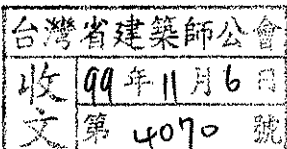 台灣省建築師公會
收文
99年11月6日
第4070號